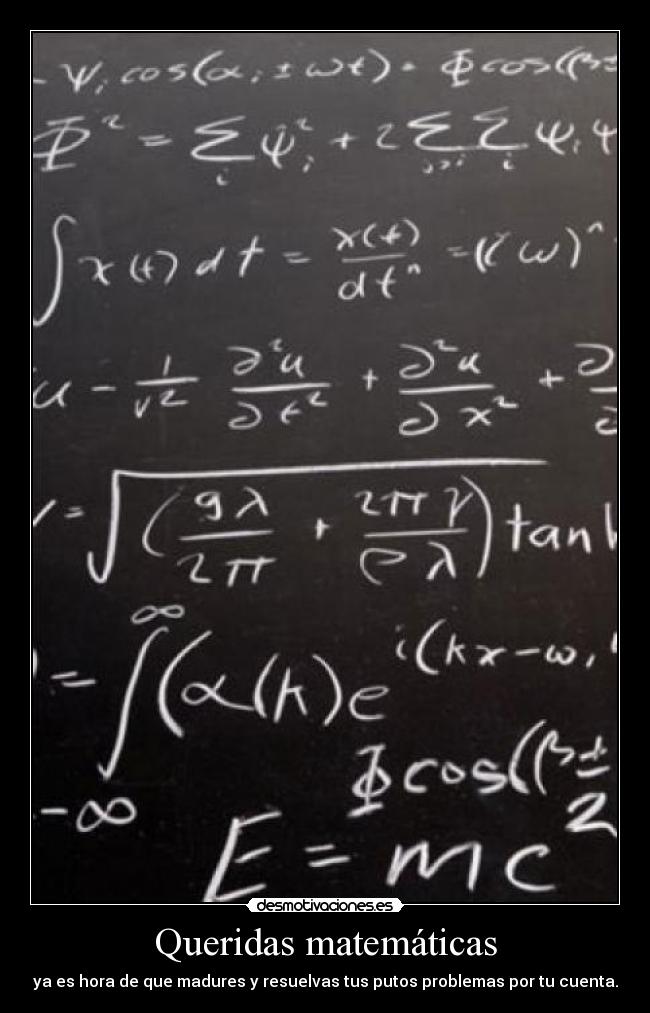 - Ψᵢ cos(αᵢ ± ωt) = Φ cos((β±
Φ² = Σᵢ Ψᵢ² + 2 Σⱼ>ᵢ Σᵢ Ψᵢ Ψ
∫x(t) dt = x(t)/dtⁿ = (i ω)ⁿ
u - 1/v² ∂²u/∂t² + ∂²u/∂x² + ∂
= √(gλ/2π + 2πγ/ρλ) tanh
) = ∫₋∞^∞ (α(k)e^i(kx-ω,
Φcos((β±
E = mc²
desmotivaciones.es
Queridas matemáticas
ya es hora de que madures y resuelvas tus putos problemas por tu cuenta.